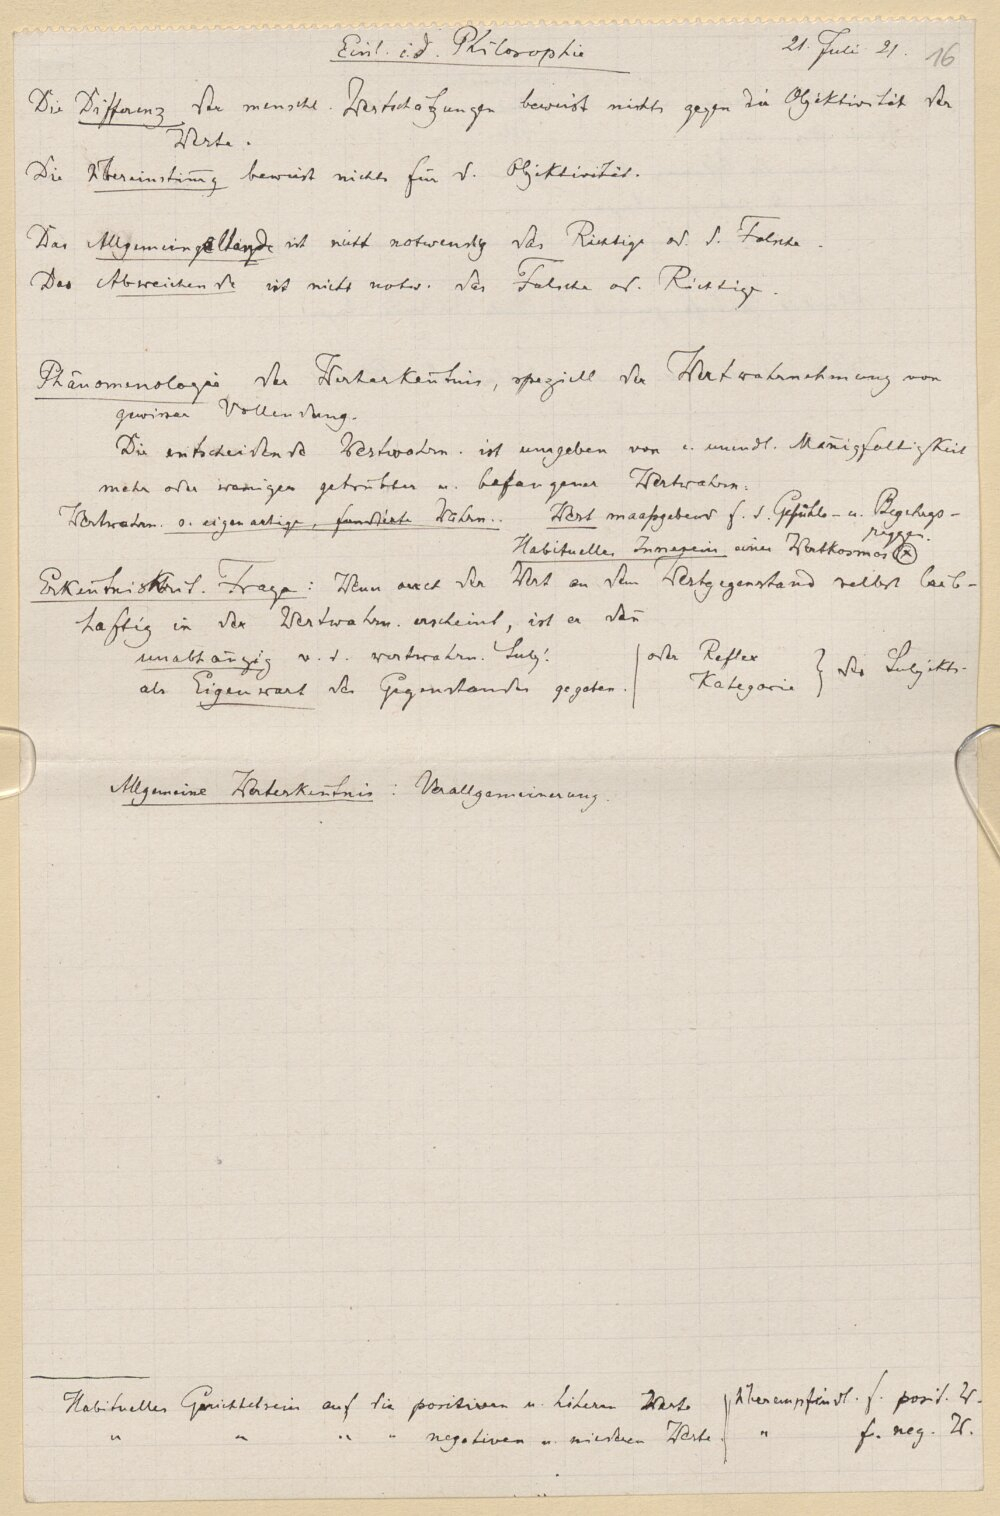 Einl. i. d. Philosophie
21. Juli 21.
16
Die Differenz der menschl. Wertschätzungen beweist nichts gegen die Objektivität der
Werte.
Die Übereinstim̄g beweist nichts für d. Objektivität.
Das Allgemeingeltende ist nicht notwendig das Richtige od. d. Falsche.
Das Abweichende ist nicht notw. das Falsche od. Richtige.
Phänomenologie der Werterken̄tnis, speziell der Wertwahrnehmung von
gewisser Vollendung.
Die entscheidende Wertwahrn. ist umgeben von e. unendl. Man̄igfaltigkeit
mehr oder weniger getrübter u. befangener Wertwahrn.
Wertwahrn. e. eigenartige, fundierte Wahrn.. Wert maassgebend f. d. Gefühls- u. Begehrgs-
reggen.
Habituelles Innesein eines Wertkosmos (x)
Erken̄tniskrit. Frage: Wenn auch der Wert an dem Wertgegenstand selbst leib-
haftig in der Wertwahrn. erscheint, ist er dan̄
unabhängig v. d. wertwahrn. Subj.
als Eigenwert des Gegenstandes gegeben.
oder Reflex
Kategorie } des Subjekts.
Allgemeine Werterken̄tnis: Verallgemeinerung.
Habituelles Gerichtetsein auf die positiven u. höheren Werte | Überempfindl. f. posit. W.
" " " " negativen u. niederen Werte. | " f. neg. W.